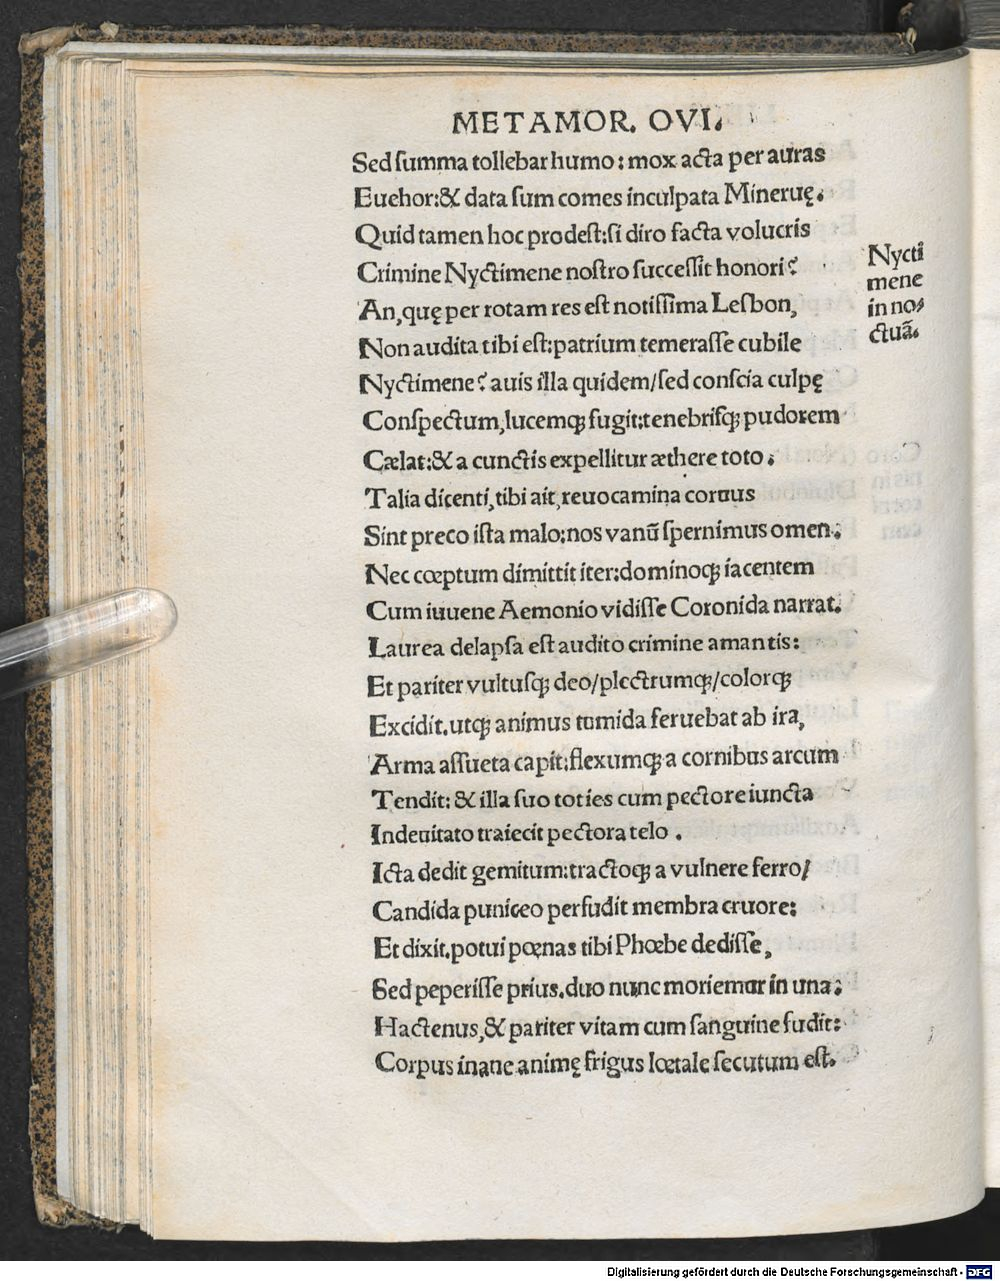 METAMOR. OVI.
Sed ſumma tollebar humo: mox acta per auras
Euehor:& data ſum comes inculpata Mineruę.
Quid tamen hoc prodeſt:ſi diro facta volucris
Crimine Nyctimene noſtro ſucceſſit honori?
An,quę per rotam res eſt notiſſima Leſbon,
Non audita tibi eſt:patrium temeraſſe cubile
Nyctimene? auis illa quidem/ſed conſcia culpę
Conſpectum,lucemqꝫ fugit:tenebriſqꝫ pudorem
Cælat:& a cunctis expellitur æthere toto.
Talia dicenti,tibi ait,reuocamina coruus
Sint preco iſta malo:nos vanū ſpernimus omen.
Nec cœptum dimittit iter:dominoqꝫ iacentem
Cum iuuene Aemonio vidiſſe Coronida narrat.
Laurea delapſa eſt audito crimine amantis:
Et pariter vultuſqꝫ deo/plectrumqꝫ/colorqꝫ
Excidit.utqꝫ animus tumida feruebat ab ira,
Arma aſſueta capit:flexumqꝫ a cornibus arcum
Tendit: & illa ſuo toties cum pectore iuncta
Indeuitato traiecit pectora telo .
Icta dedit gemitum:tractoqꝫ a vulnere ferro/
Candida puniceo perfudit membra cruore:
Et dixit.potui pœnas tibi Phœbe dediſſe,
Sed peperiſſe prius.duo nunc moriemur in una:
Hactenus,& pariter vitam cum ſanguine fudit:
Corpus inane animę frigus lœtale ſecutum eſt.
Nycti
mene
in no⸗
ctuã.
Digitalisierung gefördert durch die Deutsche Forschungsgemeinschaft - DFG